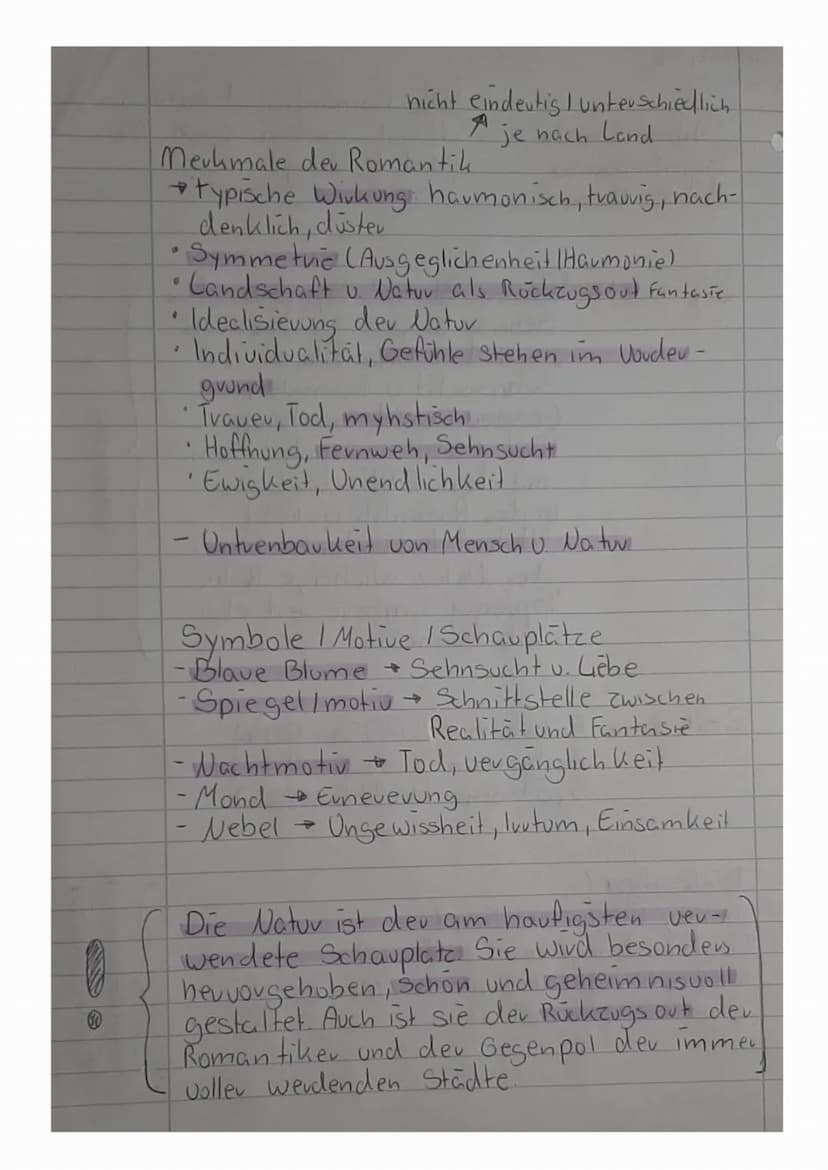 nicht eindeutig / unterschiedlich
↗ je nach Land
Merkmale der Romantik
→ typische Wirkung harmonisch, traurig, nach-
denklich, düster
• Symmetrie (Ausgeglichenheit / Harmonie)
• Landschaft u. Natur als Rückzugsort Fantasie
• Idealisierung der Natur
• Individualität, Gefühle stehen im Vorder-
grund
• Trauer, Tod, myhstisch
• Hoffnung, Fernweh, Sehnsucht
• Ewigkeit, Unendlichkeit
- Untrenbarkeit von Mensch u. Natur
Symbole / Motive / Schauplätze
- Blaue Blume → Sehnsucht u. Liebe
- Spiegel/motiv → Schnittstelle zwischen
Realität und Fantasie
- Nachtmotiv → Tod, vergänglichkeit
- Mond → Erneuerung
- Nebel → Ungewissheit, Irrtum, Einsamkeit
! Die Natur ist der am haufigsten ver-
wendete Schauplatz. Sie wird besonders
hervorgehoben, schön und geheimnisvoll
gestaltet. Auch ist sie der Rückzugsort der
Romantiker und der Gegenpol der immer
voller werdenden Städte.